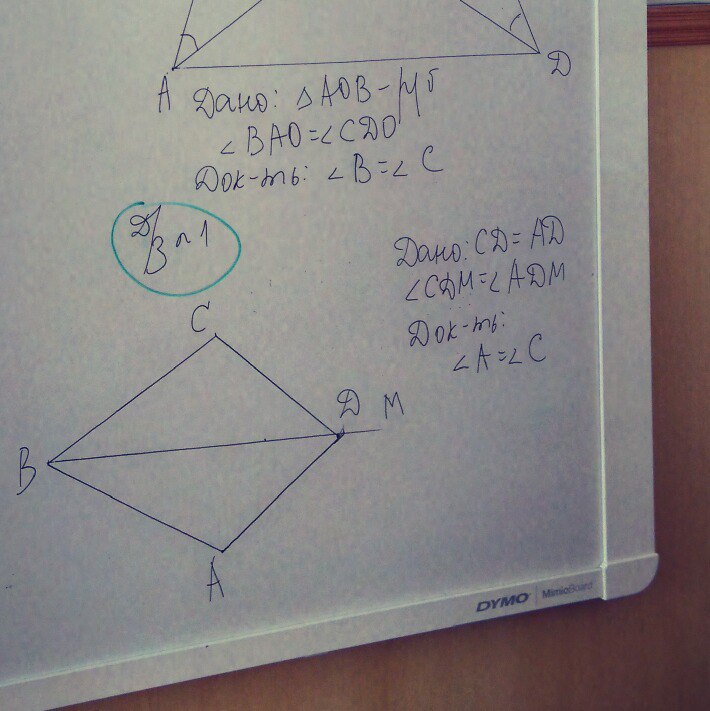 A
D
Дано: △AOB - р/б
∠BAO = ∠CDO
Док-ть: ∠B = ∠C
Д/З №1
Дано: CD = AD
∠CDM = ∠ADM
Док-ть:
∠A = ∠C
C
D M
B
A
DYMO | MimioBoard